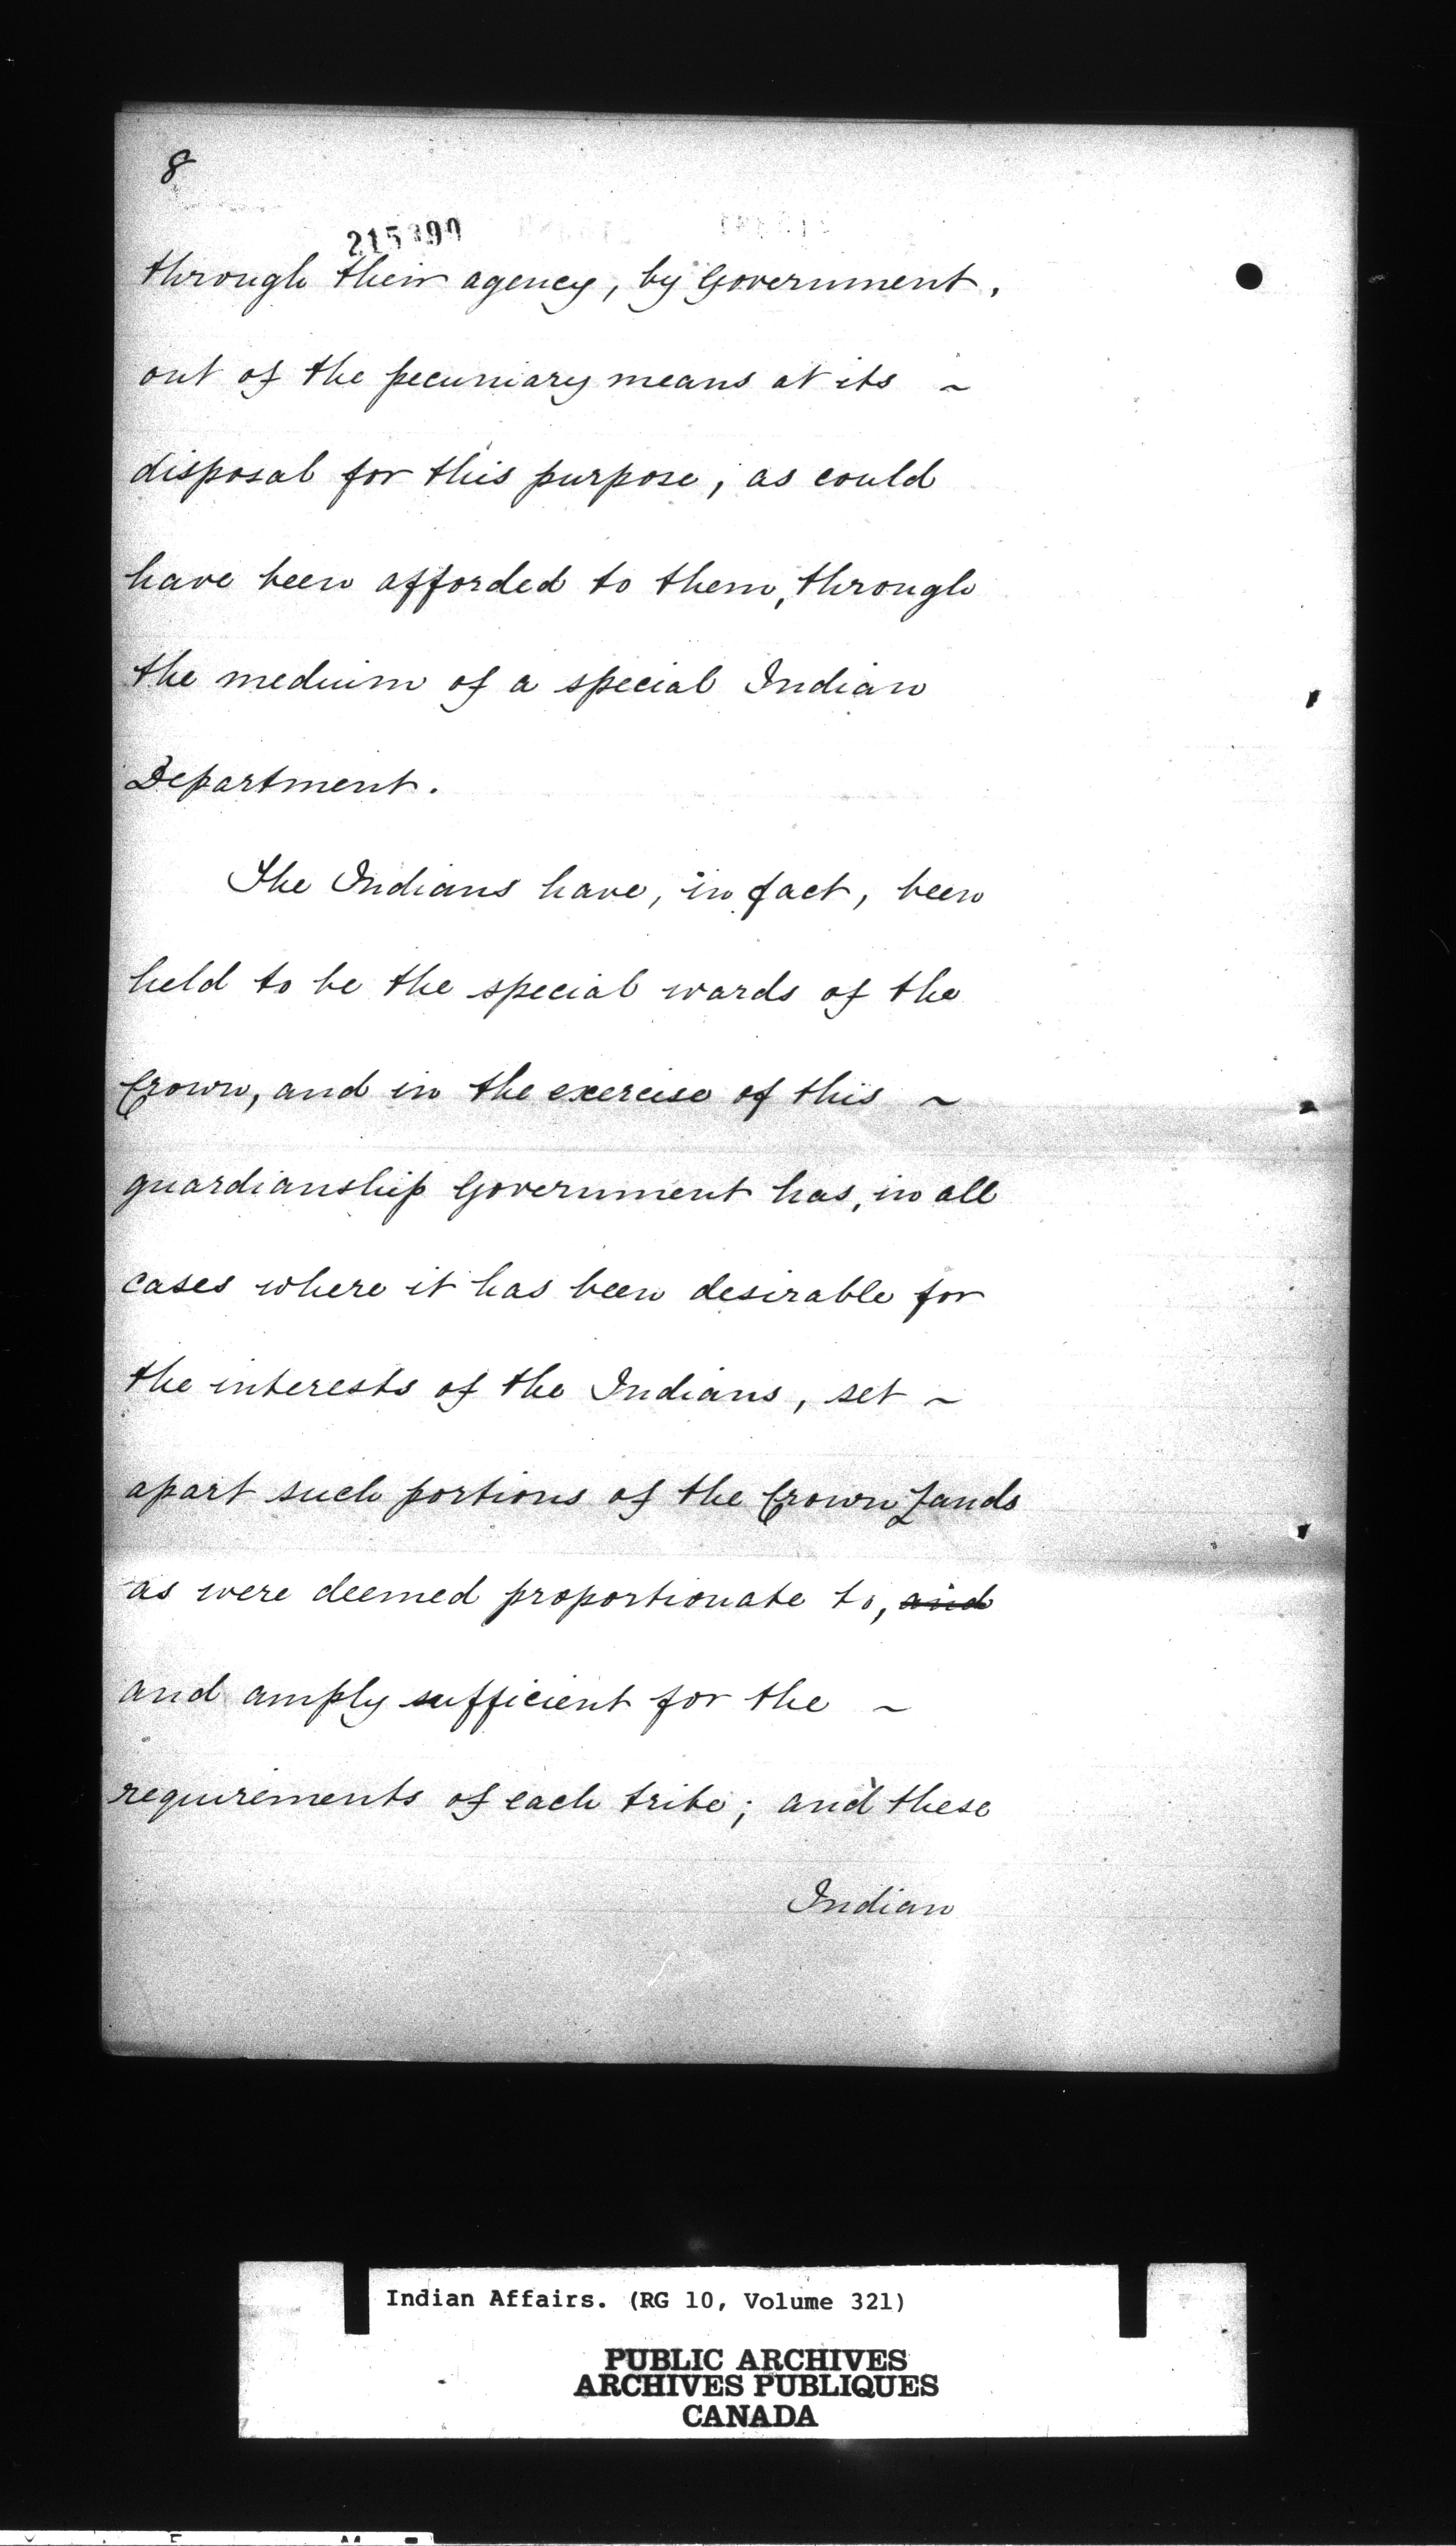 8
through their agency, by Government,
out of the pecuniary means at its ~
disposal for this purpose; as could
have been afforded to them, through
the medium of a special Indian
Department.
The Indians have, in fact, been
held to be the special wards of the
Crown, and in the exercise of this ~
guardianship Government has, in all
cases where it has been desirable for
the interests of the Indians, set ~
apart such portions of the Crown Lands
as were deemed proportionate to, and
and amply sufficient for the ~
requirements of each tribe; and these
Indian
Indian Affairs. (RG 10, Volume 321)
PUBLIC ARCHIVES
ARCHIVES PUBLIQUES
CANADA